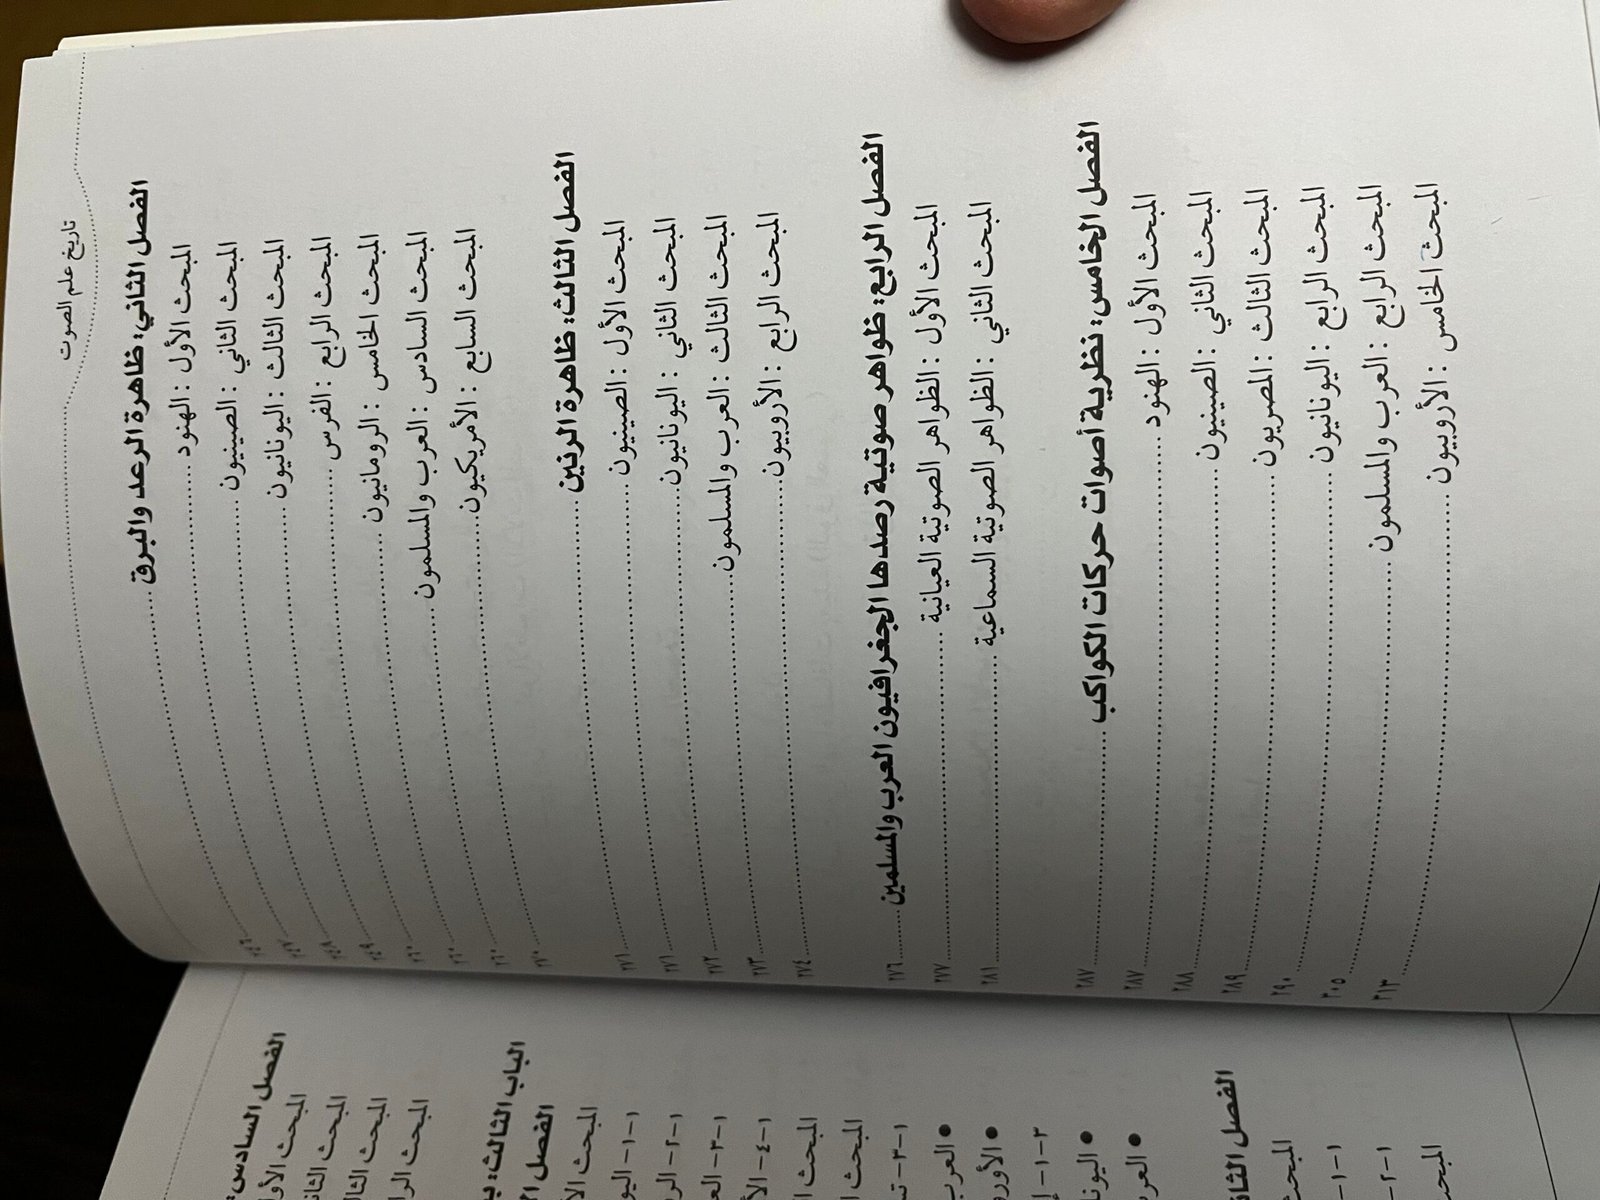 تاريخ علم الصوت
الفصل الثاني: ظاهرة الرعد والبرق
المبحث الأول : الهنود
المبحث الثاني : الصينيون
المبحث الثالث : اليونانيون
المبحث الرابع : الفرس
المبحث الخامس : الرومانيون
المبحث السادس : العرب والمسلمون
المبحث السابع : الأمريكيون
الفصل الثالث: ظاهرة الرنين ٢٧٠
المبحث الأول : الصينيون ٢٧١
المبحث الثاني : اليونانيون ٢٧١
المبحث الثالث : العرب والمسلمون ٢٧٢
المبحث الرابع : الأروبيون ٢٧٣
الفصل الرابع: ظواهر صوتية رصدها الجغرافيون العرب والمسلمين ٢٧٦
المبحث الأول : الظواهر الصوتية العيانية ٢٧٧
المبحث الثاني : الظواهر الصوتية السماعية ٢٨١
الفصل الخامس: نظرية أصوات حركات الكواكب ٢٨٧
المبحث الأول : الهنود ٢٨٧
المبحث الثاني : الصينيون ٢٨٨
المبحث الثالث : المصريون ٢٨٩
المبحث الرابع : اليونانيون ٢٩٠
المبحث الرابع : العرب والمسلمون ٣٠٥
المبحث الخامس : الأروبيون ٣١٣
الفصل السادس:
المبحث الأول
المبحث
المبحث
المبحث
الباب الثالث:
الفصل
المبحث
١-١-
١-٢-
١-٣-
١-٤-
المبحث
المبحث
١-٣-
● العرب
● الأورو
٣-١-
● اليونا
● العر
الفصل
المبحث
١-١-
١-٢-